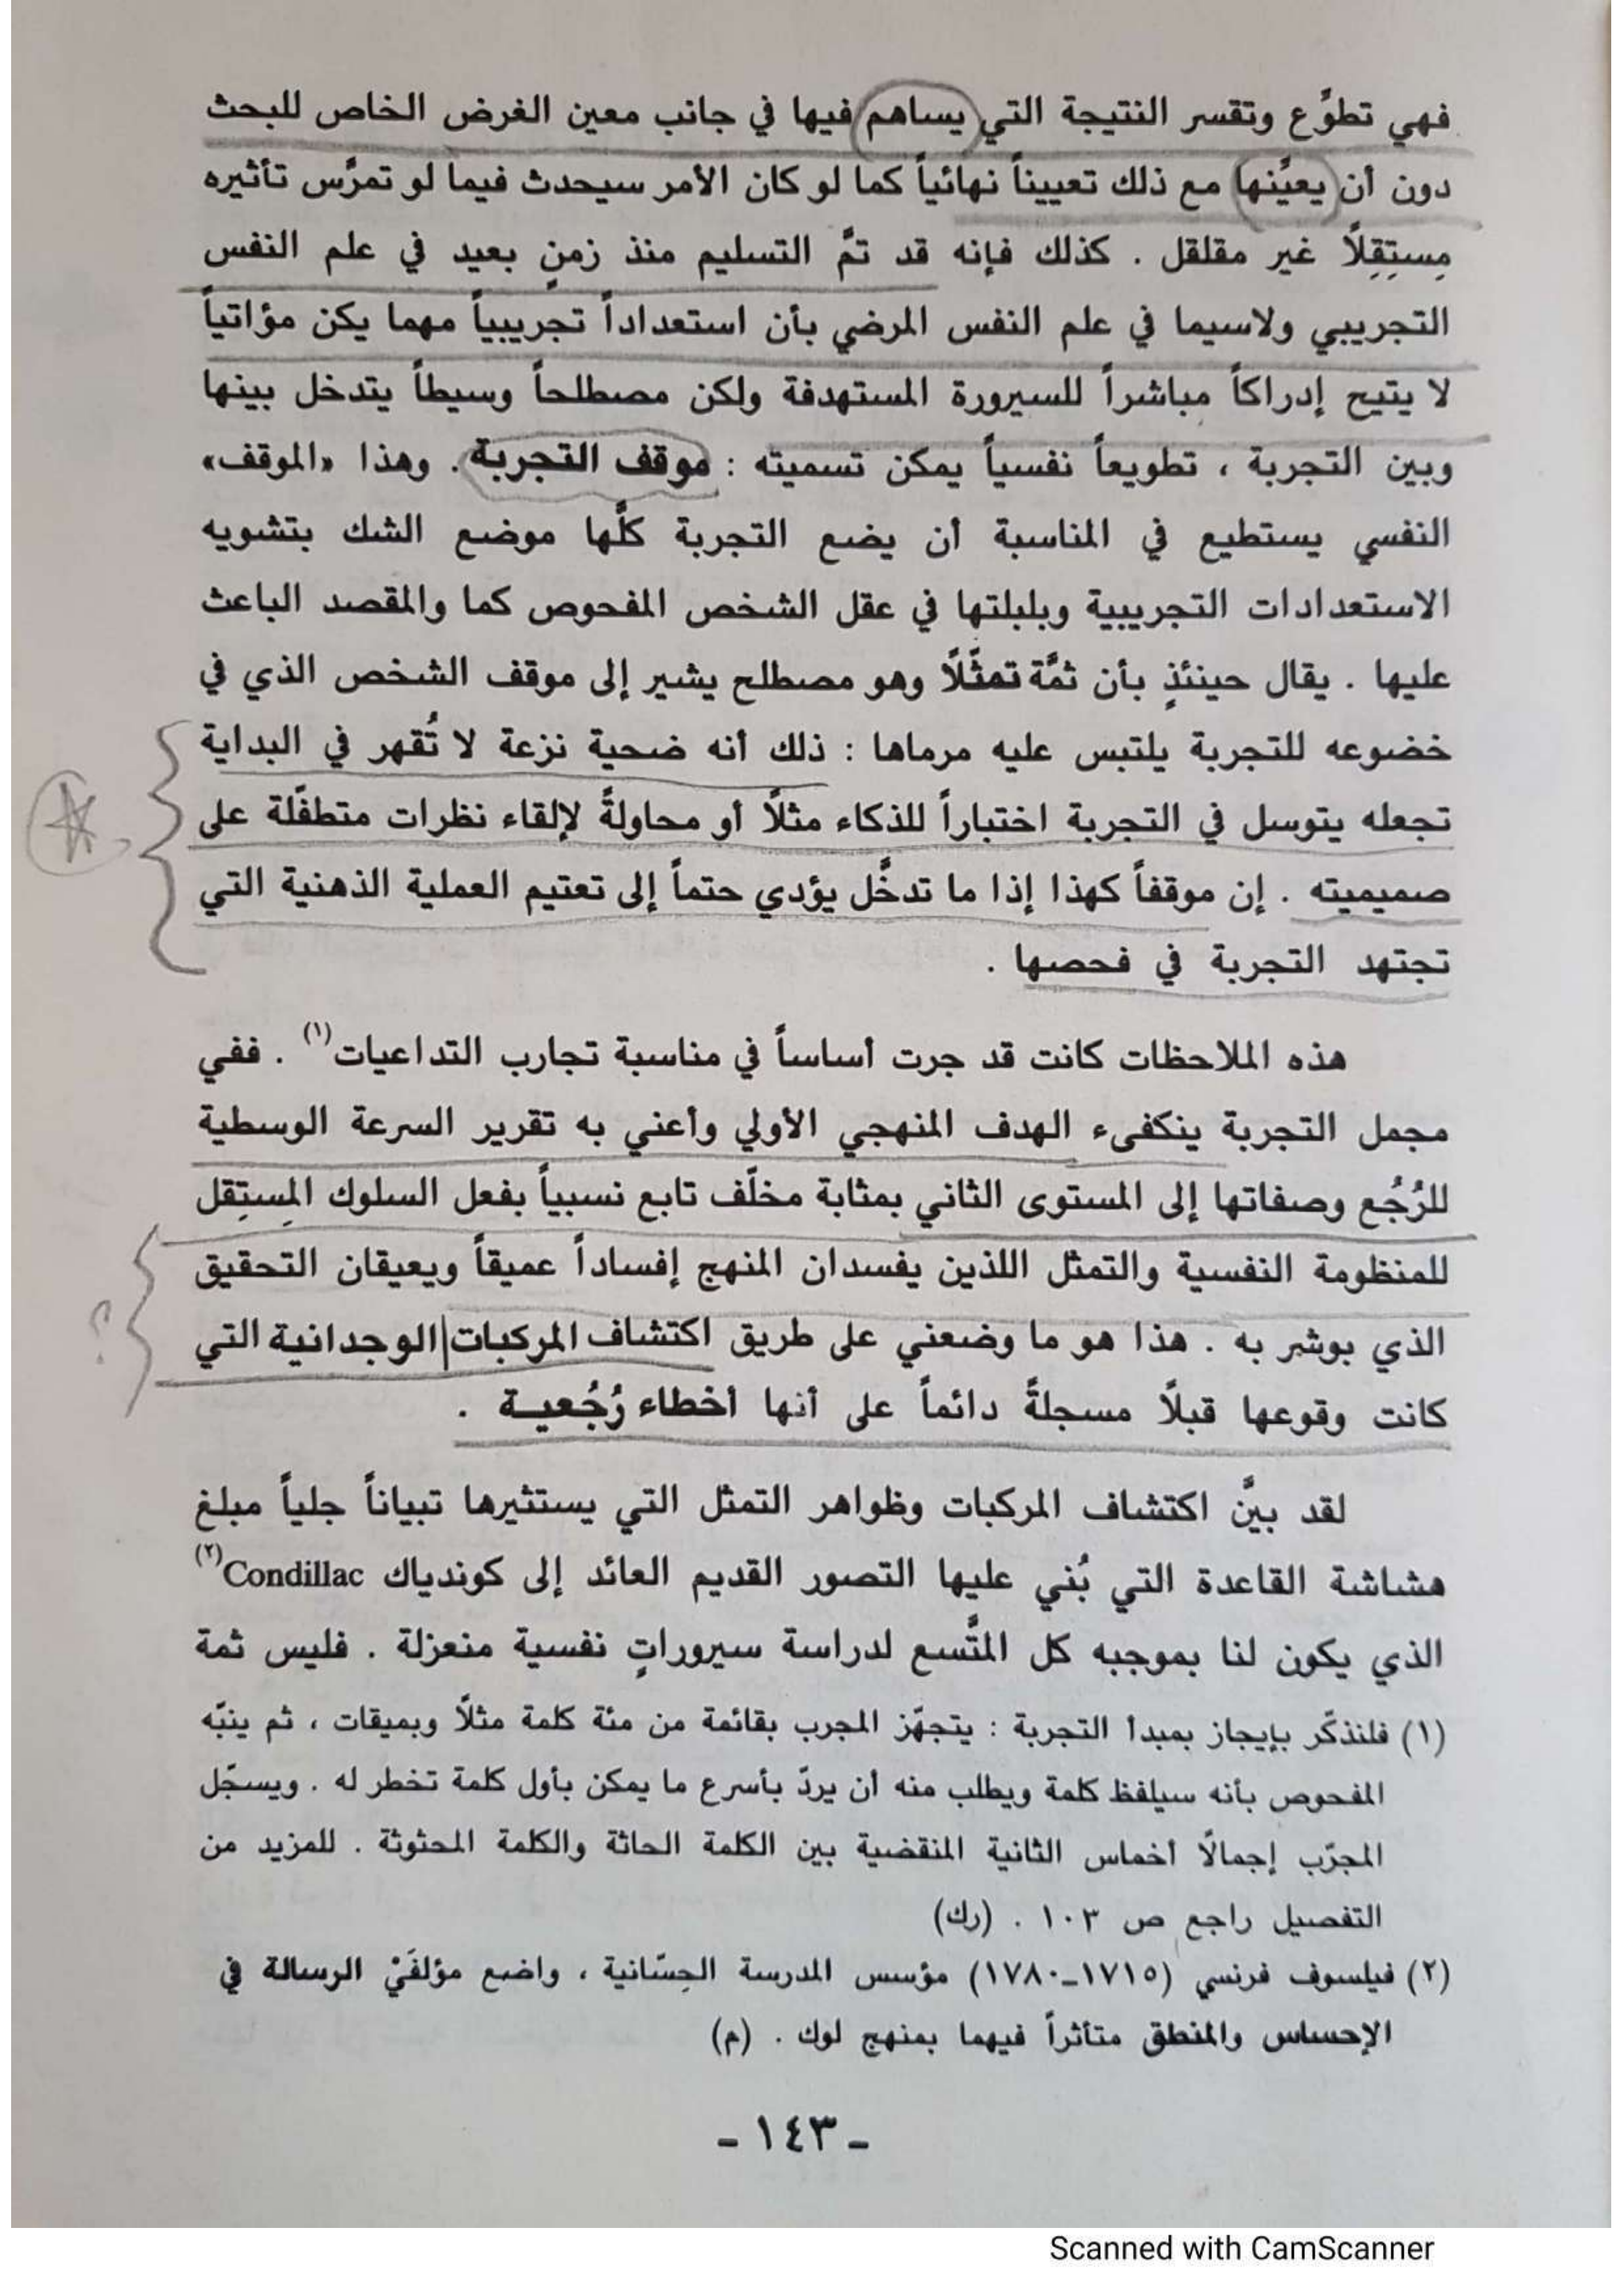 فهي تطوِّع وتقسر النتيجة التي يساهم فيها في جانب معين الغرض الخاص للبحث
دون أن يعيِّنها مع ذلك تعييناً نهائياً كما لو كان الأمر سيحدث فيما لو تمرَّس تأثيره
مِستِقِلاً غير مقلقل . كذلك فإنه قد تمَّ التسليم منذ زمنٍ بعيد في علم النفس
التجريبي ولاسيما في علم النفس المرضي بأن استعداداً تجريبياً مهما يكن مؤاتياً
لا يتيح إدراكاً مباشراً للسيرورة المستهدفة ولكن مصطلحاً وسيطاً يتدخل بينها
وبين التجربة ، تطويعاً نفسياً يمكن تسميته : موقف التجربة . وهذا «الموقف»
النفسي يستطيع في المناسبة أن يضع التجربة كلَّها موضع الشك بتشويه
الاستعدادات التجريبية وبلبلتها في عقل الشخص المفحوص كما والمقصد الباعث
عليها . يقال حينئذٍ بأن ثمَّة تمثّلاً وهو مصطلح يشير إلى موقف الشخص الذي في
خضوعه للتجربة يلتبس عليه مرماها : ذلك أنه ضحية نزعة لا تُقهر في البداية
تجعله يتوسل في التجربة اختباراً للذكاء مثلاً أو محاولةً لإلقاء نظرات متطفّلة على
صميميته . إن موقفاً كهذا إذا ما تدخَّل يؤدي حتماً إلى تعتيم العملية الذهنية التي
تجتهد التجربة في فحصها .
هذه الملاحظات كانت قد جرت أساساً في مناسبة تجارب التداعيات(١) . ففي
مجمل التجربة ينكفىء الهدف المنهجي الأولي وأعني به تقرير السرعة الوسطية
للرُجُع وصفاتها إلى المستوى الثاني بمثابة مخلّف تابع نسبياً بفعل السلوك المِستِقل
للمنظومة النفسية والتمثل اللذين يفسدان المنهج إفساداً عميقاً ويعيقان التحقيق
الذي بوشر به . هذا هو ما وضعني على طريق اكتشاف المركبات الوجدانية التي
كانت وقوعها قبلاً مسجلةً دائماً على أنها أخطاء رُجُعيـة .
لقد بيَّن اكتشاف المركبات وظواهر التمثل التي يستثيرها تبياناً جلياً مبلغ
هشاشة القاعدة التي بُني عليها التصور القديم العائد إلى كوندياك Condillac(٢)
الذي يكون لنا بموجبه كل المتَّسع لدراسة سيروراتٍ نفسية منعزلة . فليس ثمة
(١) فلنذكّر بإيجاز بمبدأ التجربة : يتجهّز المجرب بقائمة من مئة كلمة مثلاً وبميقات ، ثم ينبّه
المفحوص بأنه سيلفظ كلمة ويطلب منه أن يردّ بأسرع ما يمكن بأول كلمة تخطر له . ويسجّل
المجرّب إجمالاً أخماس الثانية المنقضية بين الكلمة الحاثة والكلمة المحثوثة . للمزيد من
التفصيل راجع ص ١٠٣ . (رك)
(٢) فيلسوف فرنسي (١٧١٥-١٧٨٠) مؤسس المدرسة الحِسّانية ، واضع مؤلفَيْ الرسالة في
الإحساس والمنطق متأثراً فيهما بمنهج لوك . (م)
- ١٤٣ -
Scanned with CamScanner